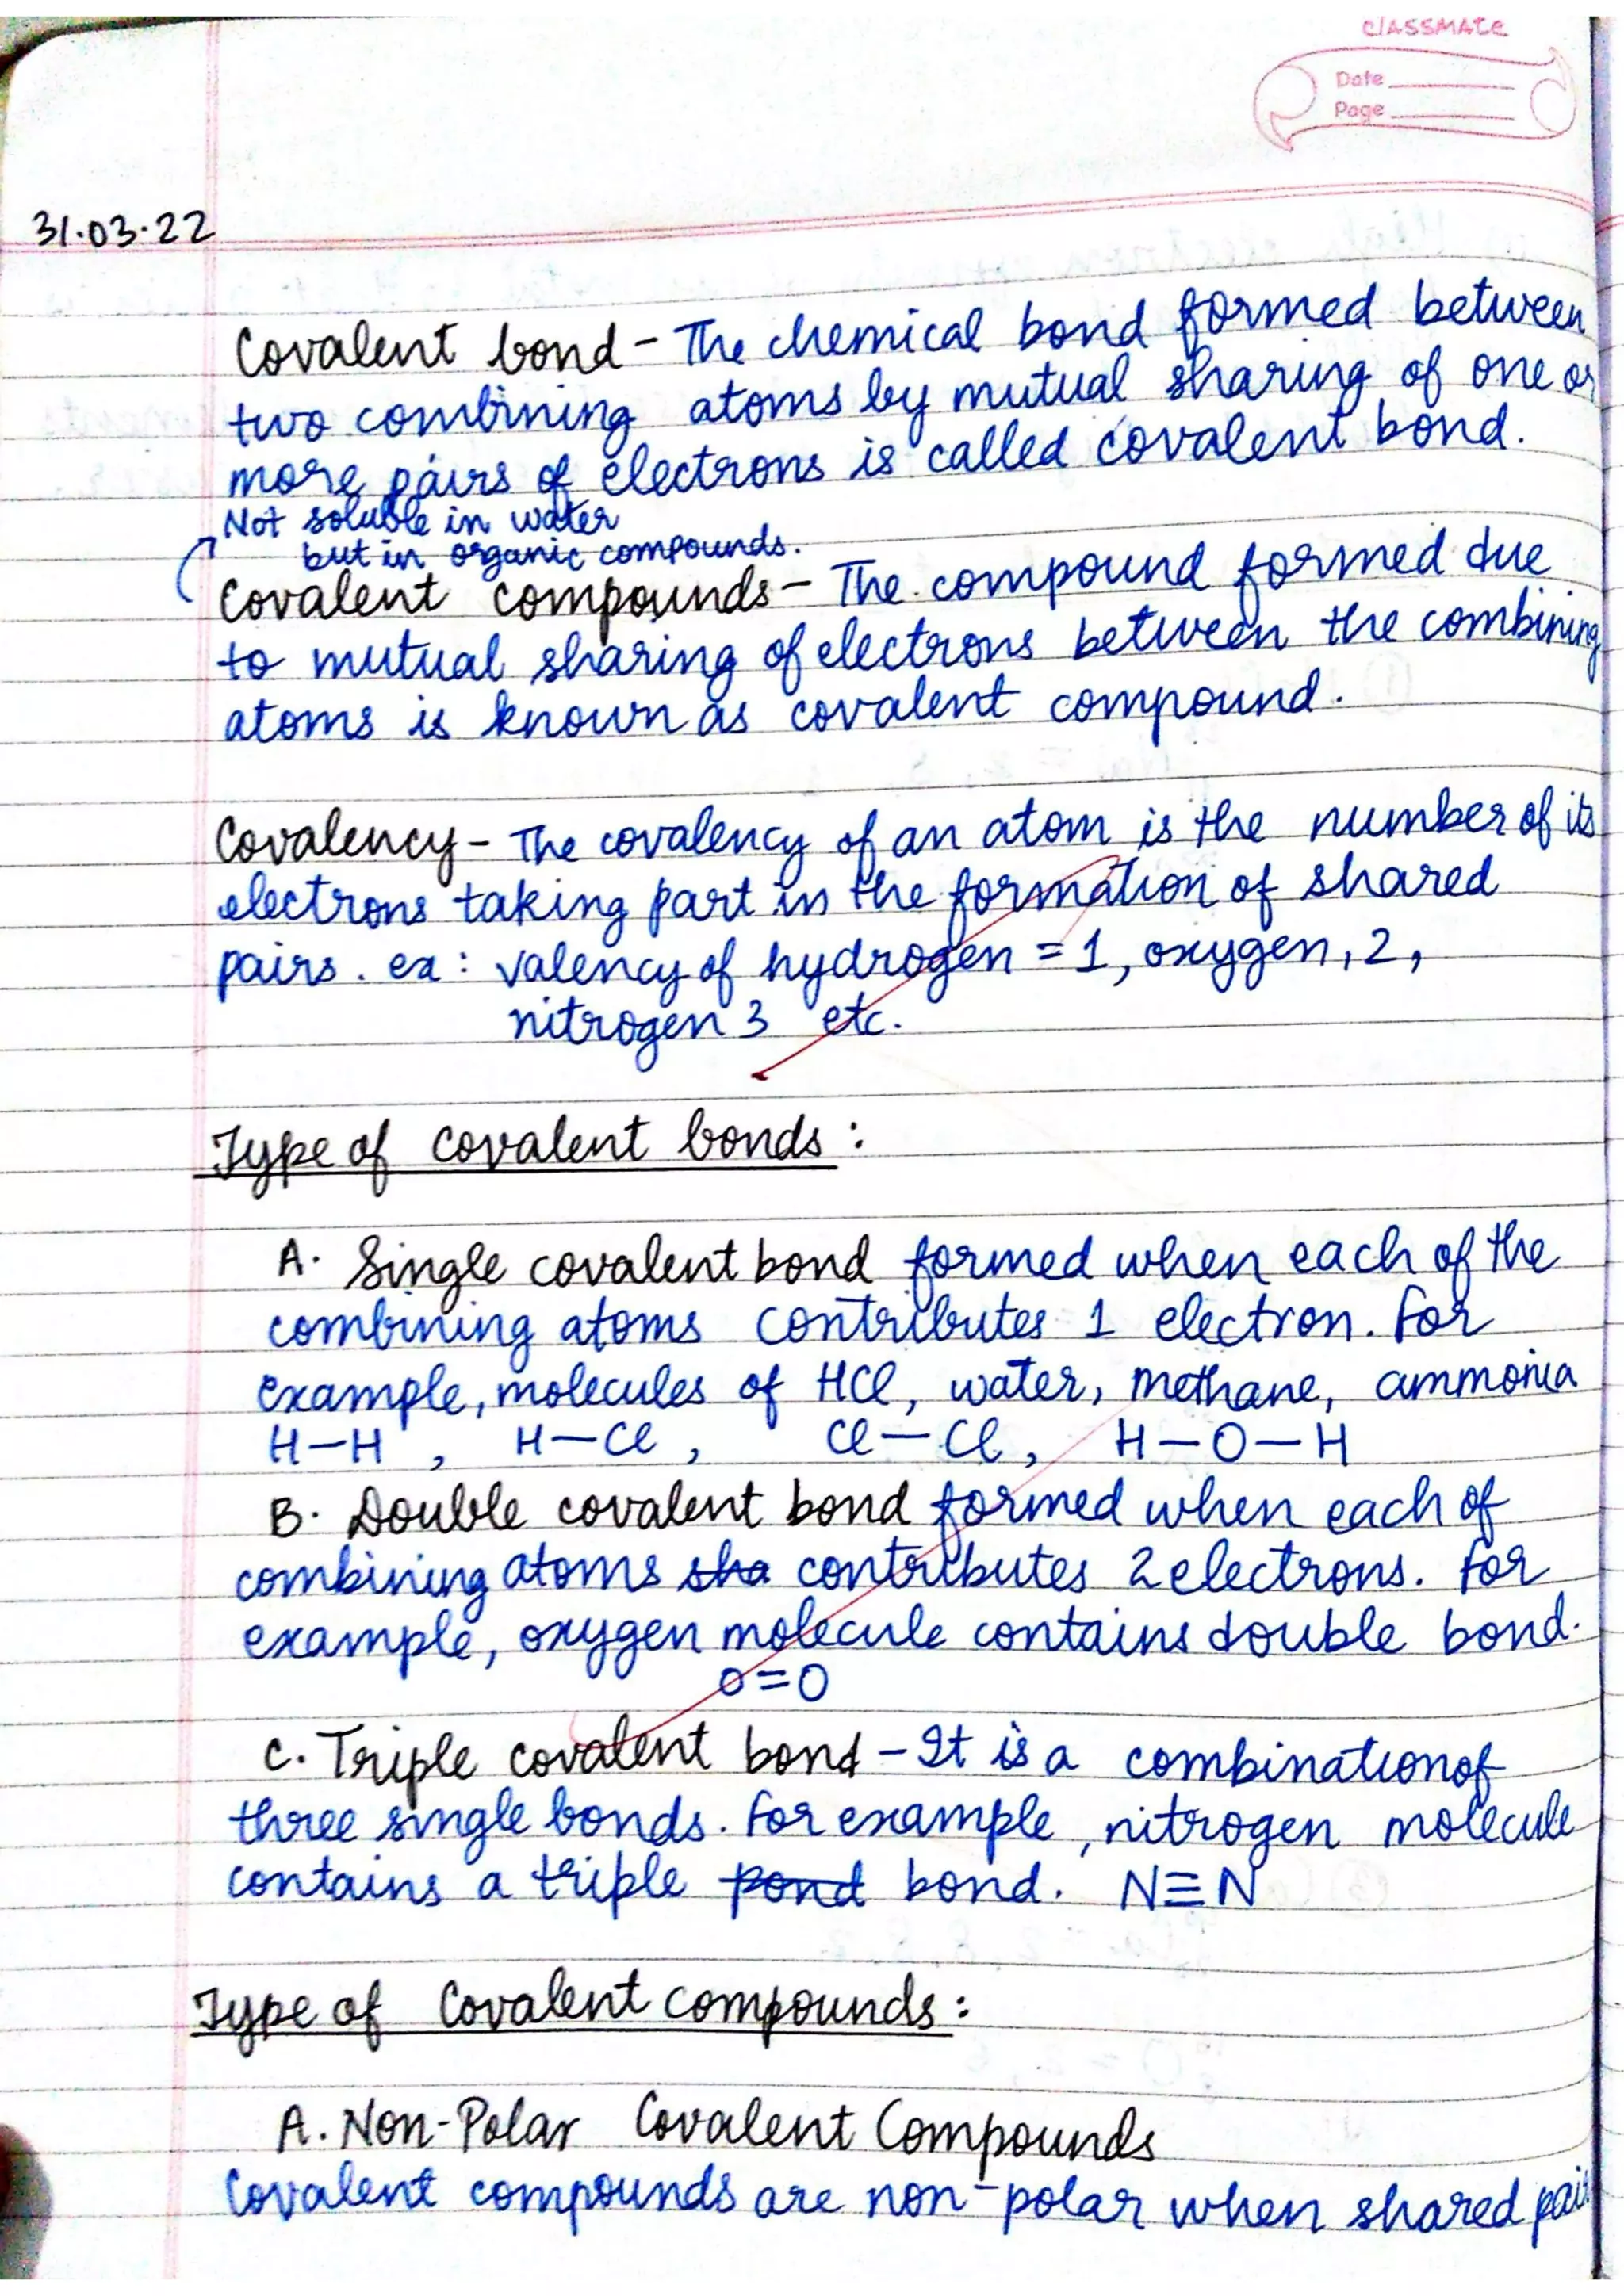 classmate
Date
Page
31.03.22
Covalent bond - The chemical bond formed between
two combining atoms by mutual sharing of one or
more pairs of electrons is called covalent bond.
Not soluble in water
but in organic compounds.
Covalent compounds - The compound formed due
to mutual sharing of electrons between the combining
atoms is known as covalent compound.
Covalency - The covalency of an atom is the number of its
electrons taking part in the formation of shared
pairs. ex: valency of hydrogen = 1, oxygen, 2,
nitrogen 3 etc.
Type of covalent bonds:
A. Single covalent bond formed when each of the
combining atoms contributes 1 electron. For
example, molecules of HCl, water, methane, ammonia
H-H, H-Cl, Cl-Cl, H-O-H
B. Double covalent bond formed when each of
combining atoms sha contributes 2 electrons. For
example, oxygen molecule contains double bond.
O=O
C. Triple covalent bond - It is a combination of
three single bonds. For example, nitrogen molecule
contains a triple pond bond. N≡N
Type of Covalent compounds:
A. Non-Polar Covalent Compounds
Covalent compounds are non-polar when shared pair